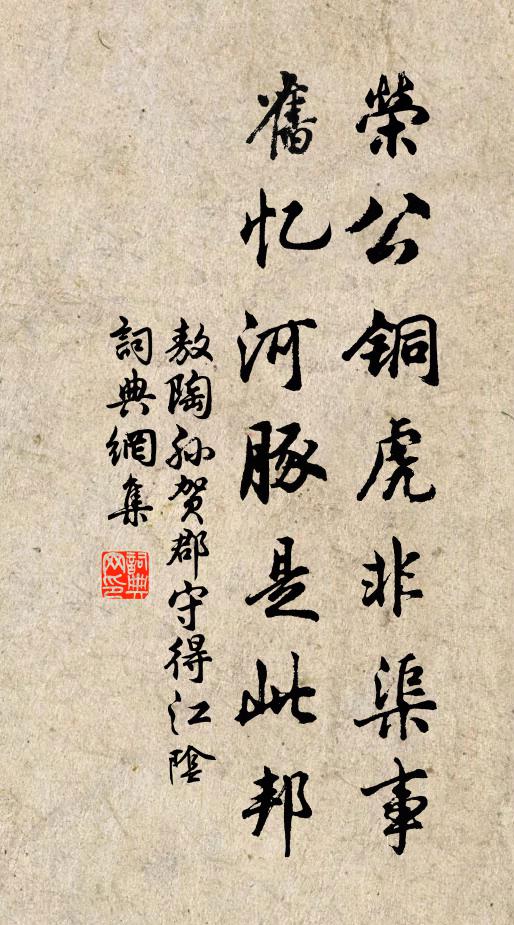 榮公铜虎非渠事
舊忆河豚是此邦
敖陶孙贺郡守得江陰
詞典網集
詞典
网印